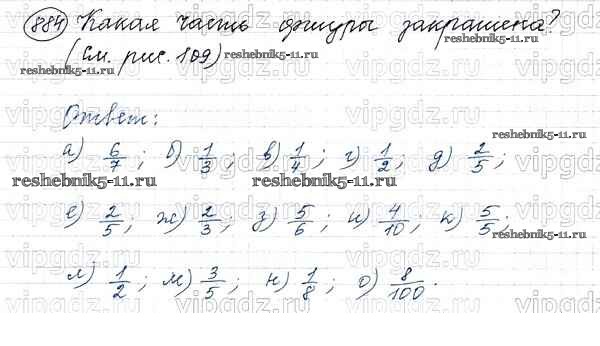 884 Какая часть фигуры закрашена?
(См. рис. 109)
reshebnik5-11.ru
reshebnik5-11.ru
vipgdz.ru vipgdz.ru vipgdz.ru
Ответ:
а) 6/7; б) 1/3; в) 1/4; г) 1/2; д) 2/5;
reshebnik5-11.ru reshebnik5-11.ru
е) 2/5; ж) 2/3; з) 5/6; и) 4/10; к) 5/5;
reshebnik5-11.ru
л) 1/2; м) 3/5; н) 1/8; о) 8/100.
vipgdz.ru vipgdz.ru vipgdz.ru